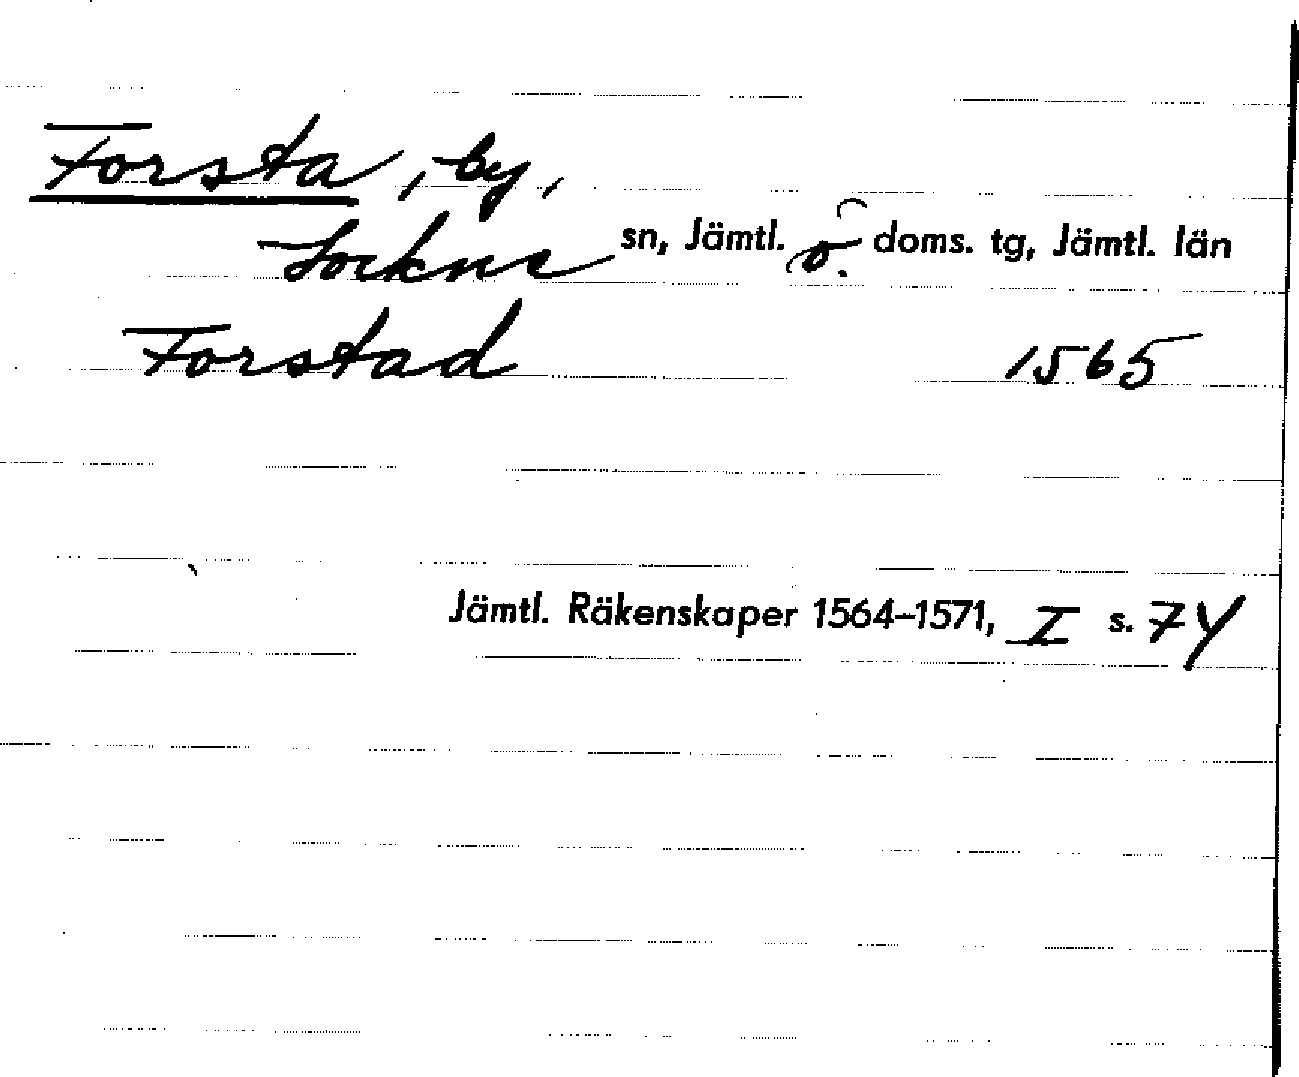 Forsta, by,
Lockne sn, Jämtl. ö. doms. tg, Jämtl. län
Forstad 1565
Jämtl. Räkenskaper 1564–1571, I s. 74